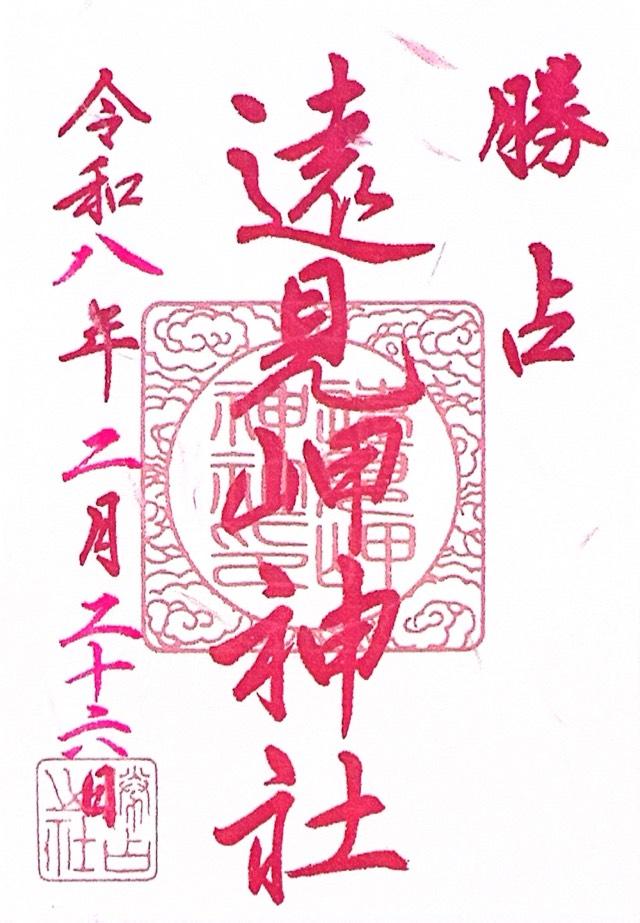 勝占
遠見岬神社
令和八年二月二十六日
遠見岬
神社印
勝占